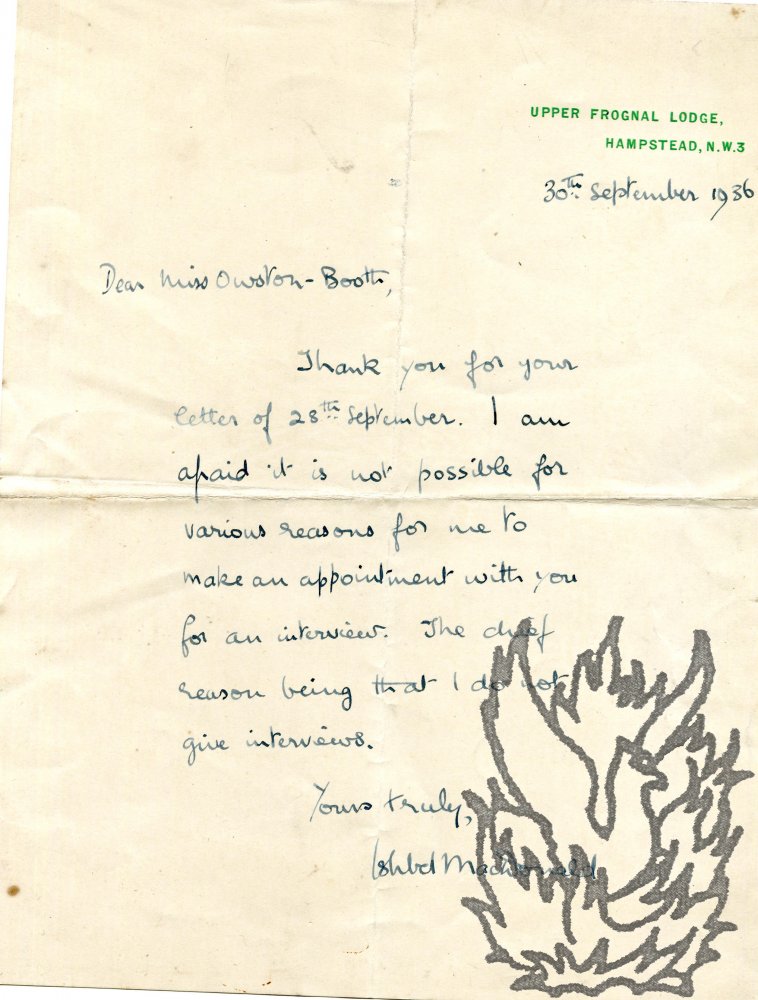 UPPER FROGNAL LODGE,
HAMPSTEAD, N.W.3
30th September 1936
Dear Miss Owston-Booth,
Thank you for your
letter of 28th September. I am
afraid it is not possible for
various reasons for me to
make an appointment with you
for an interview. The chief
reason being that I do not
give interviews.
Yours truly,
Ishbel MacDonald